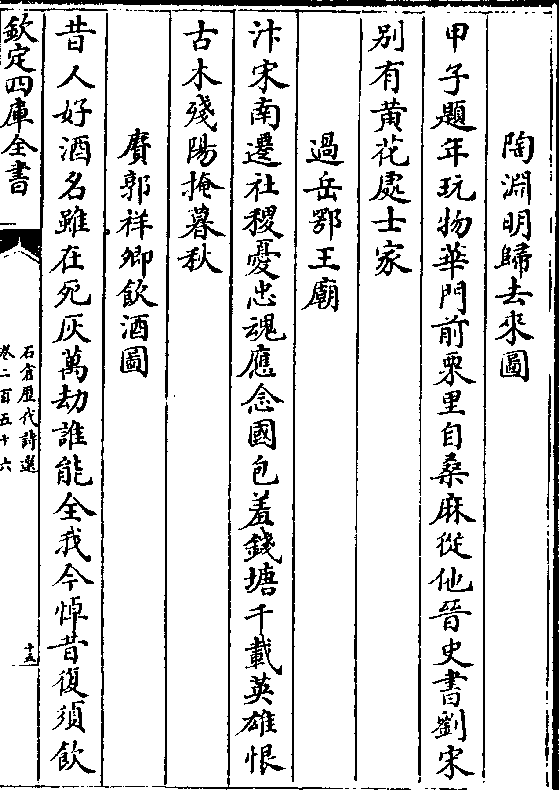 陶淵明歸去來圖
甲子題年玩物華門前栗里自桑麻從他晉史書劉宋
别有黄花處士家
過岳鄂王廟
汴宋南遷社稷憂忠魂應念國包羞錢塘千載英雄恨
古木殘陽掩暮秋
賡郭祥卿飲酒圖
昔人好酒名雖在死灰萬劫誰能全我今悼昔復須飲
欽定四庫全書
石倉歷代詩選
卷二百五十六
十五